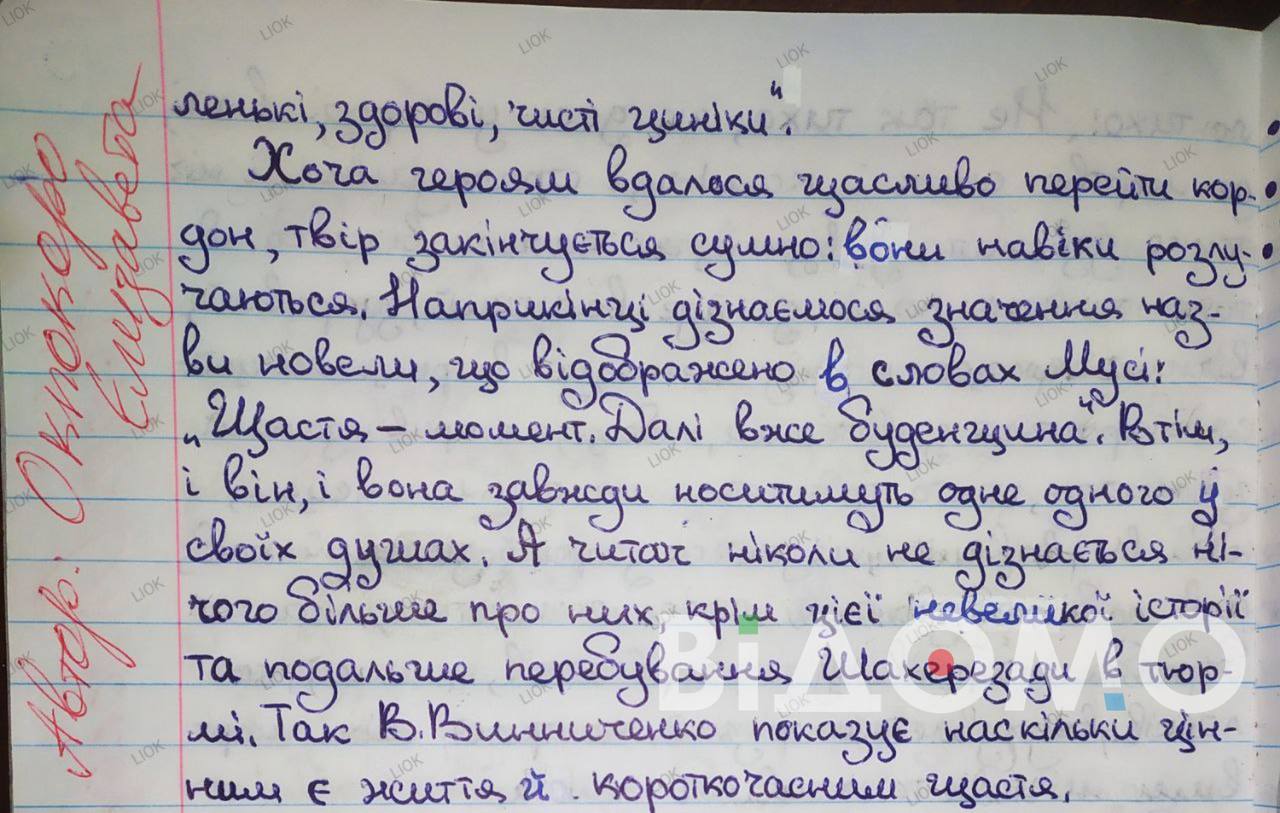 ленькі, здорові, чисті циніки".
Хоча героям вдалося щасливо перейти кор-
дон, твір закінчується сумно: вони навіки розлу-
чаються. Наприкінці дізнаємося значення наз-
ви новели, що відображено в словах Мусі:
„Щастя – момент. Далі вже буденщина". Втім,
і він, і вона завжди носитимуть одне одного у
своїх душах. А читач ніколи не дізнається ні-
чого більше про них, крім цієї невеликої історії
та подальше перебування Шахерезади в тюр-
мі. Так В.Винниченко показує наскільки цін-
ним є життя й короткочасним щастя.
Автор: Октокоро
Єлизавета
LIOK
ВІДОМО